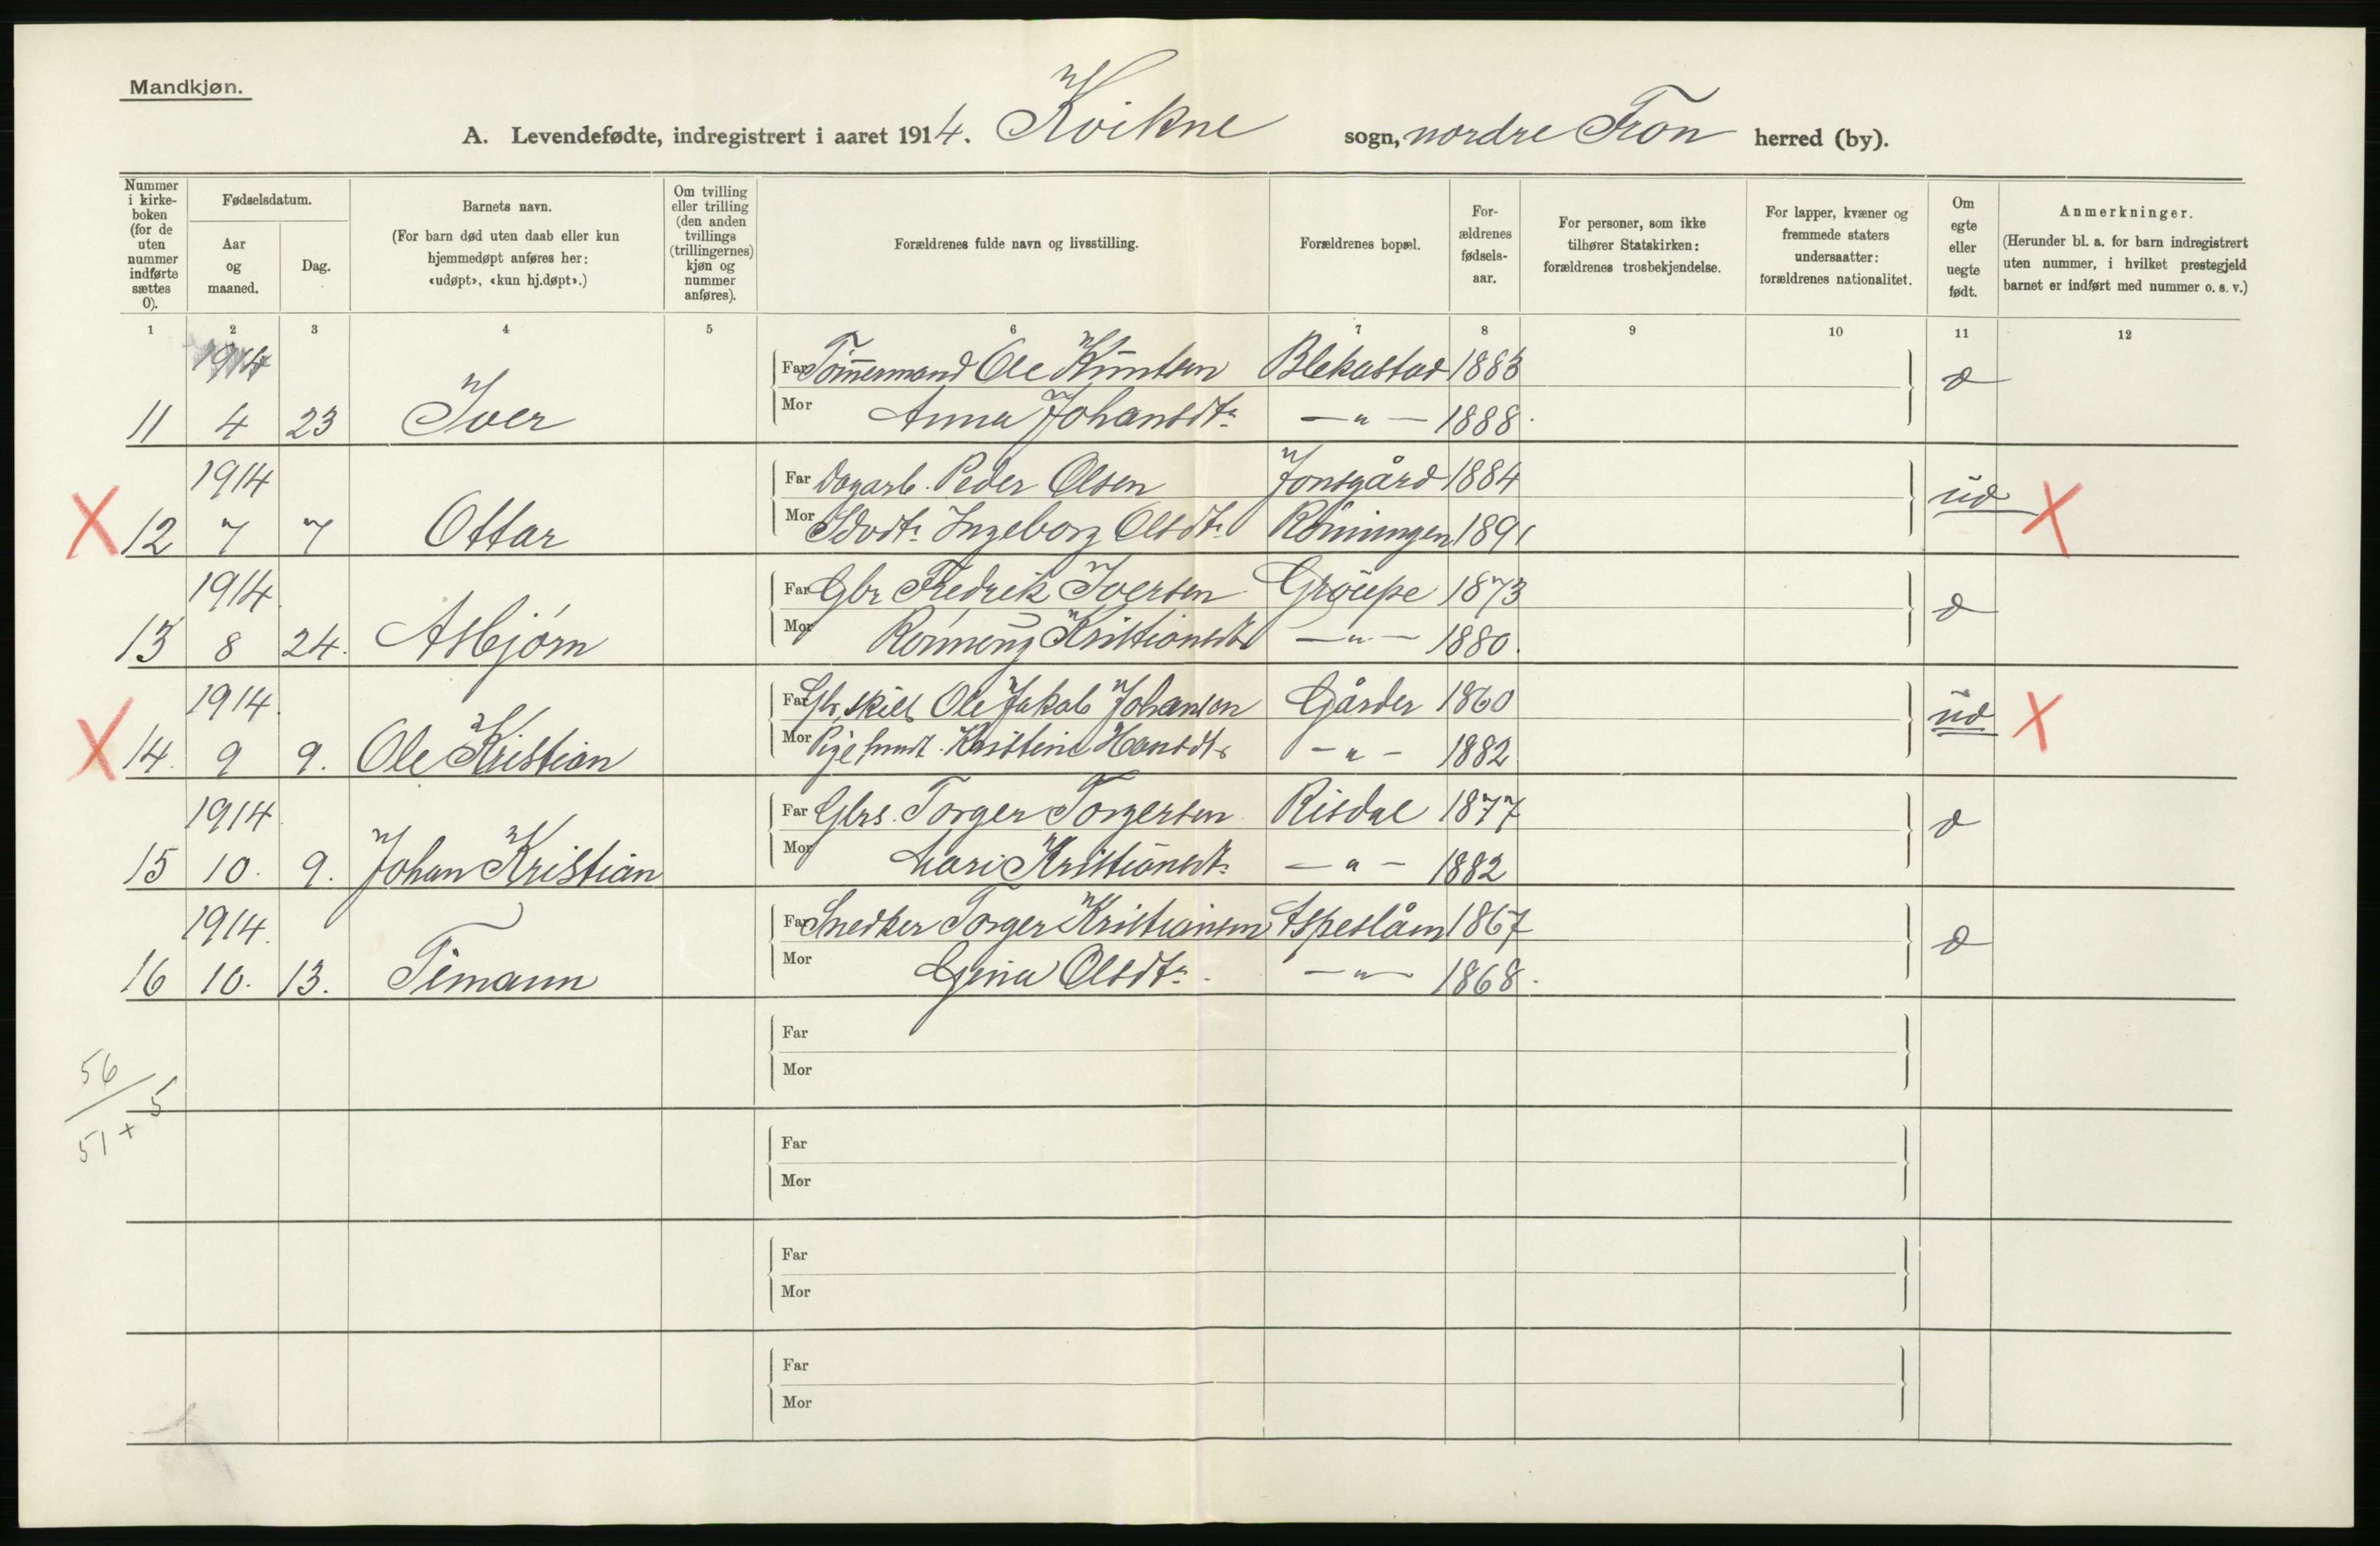 Mandkjøn.
A. Levendefødte, indregistrert i aaret 1914. Kvikne sogn, nordre Fron herred (by).
Nummer i kirkeboken (for de uten nummer indførte sættes 0).
Fødselsdatum.
Aar og maaned.
Dag.
Barnets navn.
(For barn død uten daab eller kun hjemmedøpt anføres her: «udøpt», «kun hj.døpt».)
Om tvilling eller trilling (den anden tvillings (trillingernes) kjøn og nummer anføres).
Forældrenes fulde navn og livsstilling.
Forældrenes bopæl.
Forældrenes fødselsaar.
For personer, som ikke tilhører Statskirken: forældrenes trosbekjendelse.
For lapper, kvæner og fremmede staters undersaatter: forældrenes nationalitet.
Om egte eller uegte født.
Anmerkninger.
(Herunder bl. a. for barn indregistrert uten nummer, i hvilket prestegjeld barnet er indført med nummer o. s. v.)
1 2 3 4 5 6 7 8 9 10 11 12
1914 Far Tömmermand Ole Knutsen Blekastad 1883
11 4 23 Iver Mor Anna Johansdtr. — " — 1888.
1914 Far Dagarb. Peder Olsen Jonsgård 1884 ud X
X 12 7 7 Ottar Mor Ingeborg Olsdtr. 1891
1914 Far Gbr Fredrik Iversen 1873
13 8 24. Asbjörn Mor Rönnaug Kristiansdtr — " — 1880.
1914. Far Gbr, skilt Ole Jakob Johansen Gårder 1860 ud X
X 14. 9 9. Ole Kristian Mor Kristine Hansdtr — " — 1882
1914. Far Gbrs. Torger Torgersen Risdal 1877
15 10. 9. Johan Kristian Mor Mari Kristiansdtr. — " — 1882
1914. Far Snedker Torger Kristiansen 1867
16 10. 13. Timann Mor Gina Olsdtr. — " — 1868.
Far
Mor
56
51 + 5
Far
Mor
Far
Mor
Far
Mor